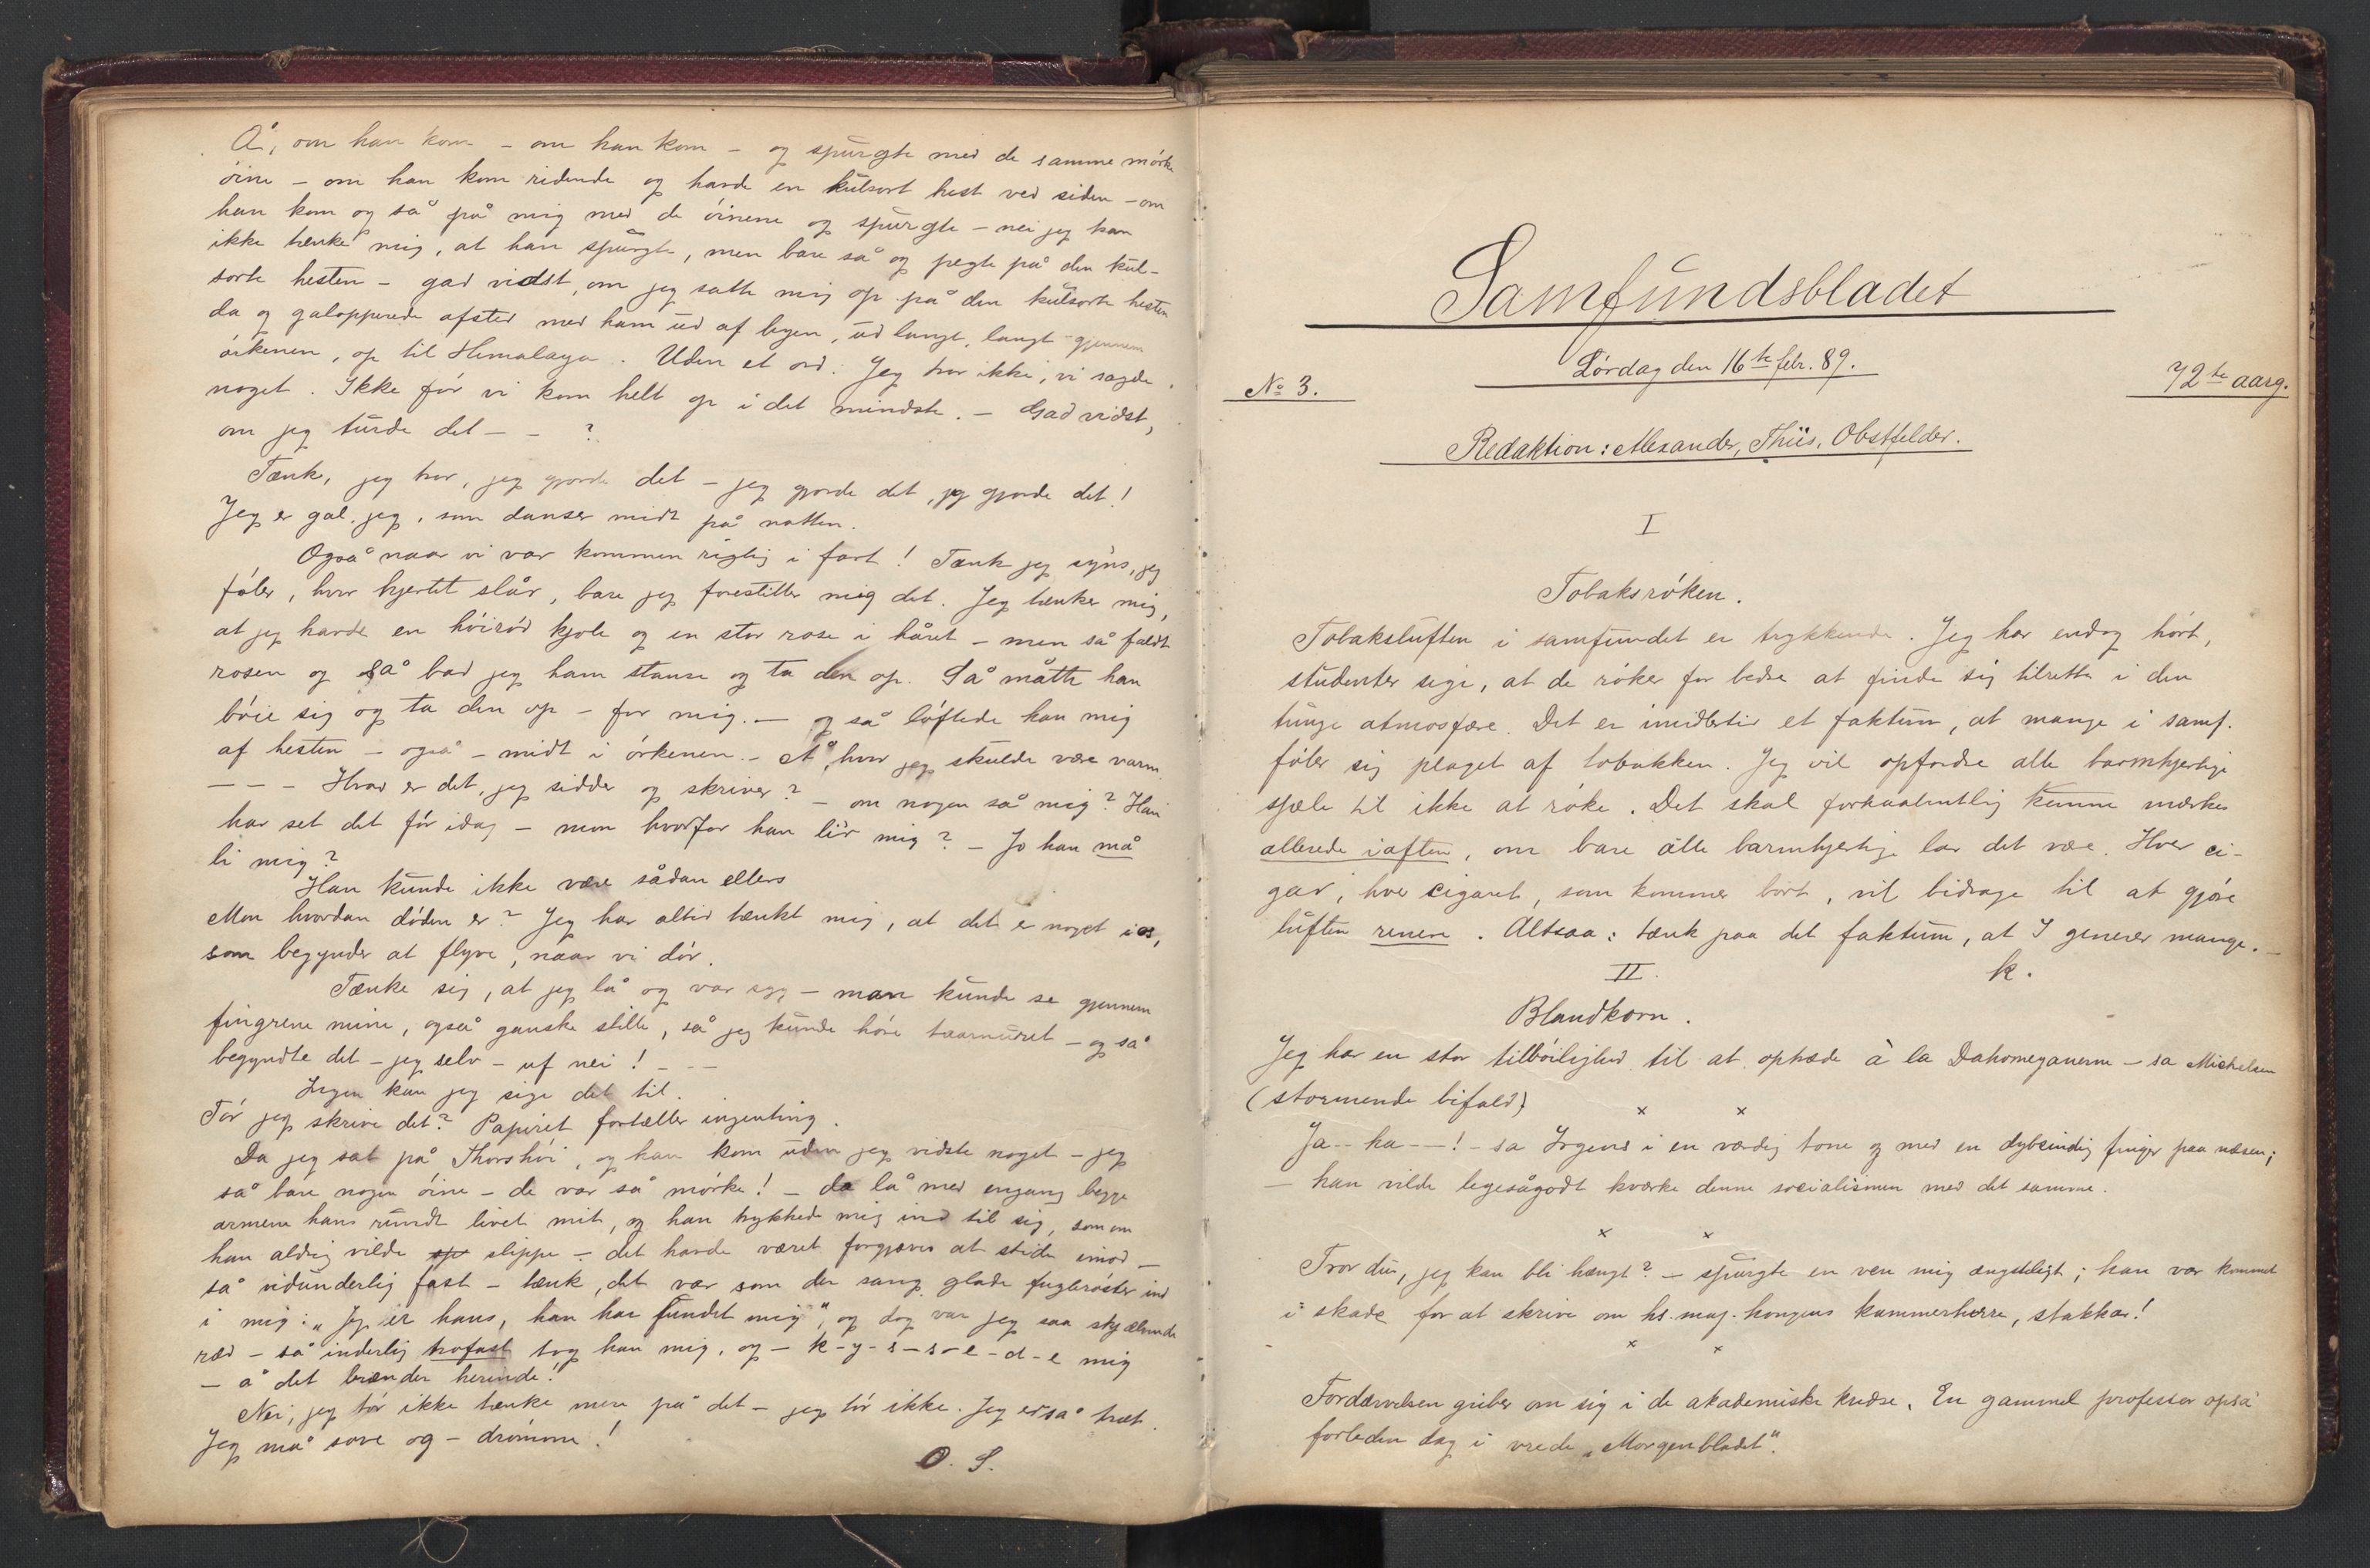 Å, om han kom – om han kom – og spurgte med de samme mórke
óine – om han kom ridende og havde en kulsort hest ved siden – om
han kom og så på mig med de óinene og spurgte – nei jeg kan
ikke tænke mig, at han spurgte, men bare så og pegte på den kul-
sorte hesten – gad vidst, om jeg satte mig op på den kulsorte hesten
da og galopperede afsted med ham ud af byen, ud langt, langt gjennem
órkenen, op til Himalaya. Uden et ord. Jeg tror ikke, vi sagde
noget. Ikke fór vi kom helt op i det mindste. – Gad vidst,
om jeg turde det – – ?
Tænk, jeg tror, jeg gjorde det – jeg gjorde det, jeg gjorde det!
Jeg er gal, jeg, som danser midt på natten.
Også naar vi var kommen rigtig i fart! Tænk jeg syns, jeg
fóler, hvor hjertet slår, bare jeg forestiller mig det. Jeg tænker mig,
at jeg havde en hóiród kjole og en stor rose i håret – men så faldt
rosen og så bad jeg ham stanse og ta den op. Så måtte han
bóie sig og ta den op – for mig. – og så lóftede han mig
af hesten – også – midt i órkenen. – Å, hvor jeg skulde være varm
– – – Hvad er det, jeg sidder og skriver? – om nogen så mig? Han
har set det fór idag – mon hvorfor han li'r mig? – Jo han må
li mig?
Han kunde ikke være sådan ellers
Mon hvordan dóden er? Jeg har altid tænkt mig, at det er noget i os,
som begynder at flyve, naar vi dór.
Tænke sig, at jeg lå og var syg – man kunde se gjennem
fingrene mine, også ganske stille, så jeg kunde hóre taarnuret – og så
begyndte det – jeg selv – uf nei! – – –
Ingen kan jeg sige det til.
Tór jeg skrive det? Papiret fortæller ingenting.
Da jeg sat på Thorshói, og han kom uden jeg vidste noget – jeg
så bare nogen óine – de var så mórke! – da lå med engang begge
armene hans rundt livet mit, og han trykkede mig ind til sig, som om
han aldrig vilde slippe – det havde været forgjæves at stride imod –
så vidunderlig fast – tænk, det var som der sang glade fuglerόster ind
i mig: „Jeg er hans, han har fundet mig", og dog var jeg saa skjælvende
ræd – så inderlig trofast tog han mig, og – k-y-s-s-e-d-e mig
– å det brænder herinde!
Nei, jeg tór ikke tænke mere på det – jeg tór ikke. Jeg er så træt.
Jeg må sove og – drómme!
O. S.
Samfundsbladet
Lórdag den 16te febr. 89.
No 3.
72te aarg.
Redaktion: Alexander, Thiis, Obstfelder.
I
Tobaksróken.
Tobaksluften i samfundet er trykkende. Jeg har endog hórt,
studenter sige, at de róker for bedre at finde sig tilrette i den
tunge atmosfære. Det er imidlertid et faktum, at mange i samf.
fóler sig plaget af tobakken. Jeg vil opfordre alle barmhjertige
sjæle til ikke at róke. Det skal forhaabentlig kunne mærkes
allerede iaften, om bare alle barmhjertige lar det være. Hver ci-
gar, hver cigaret, som kommer bort, vil bidrage til at gjóre
luften renere. Altsaa: tænk paa det faktum, at I generer mange. –
k.
II.
Blandkorn.
Jeg har en stor tilbóilighed til at optræde à la Dahomeyanerne – sa Michelsen
(stormende bifald)
x x
Ja -- ha --! – sa Irgens i en værdig tone og med en dybsindig finger paa næsen;
– han vilde ligesågodt kværke denne socialismen med det samme.
x x
Tror du, jeg kan bli hængt? – spurgte en ven mig ængsteligt; han var kommet
i skade for at skrive om hs. maj. kongens kammerherre, stakkar!
x x
Fordærvelsen griber om sig i de akademiske kredse. En gammel professor opsa
forleden dag i vrede „Morgenbladet".